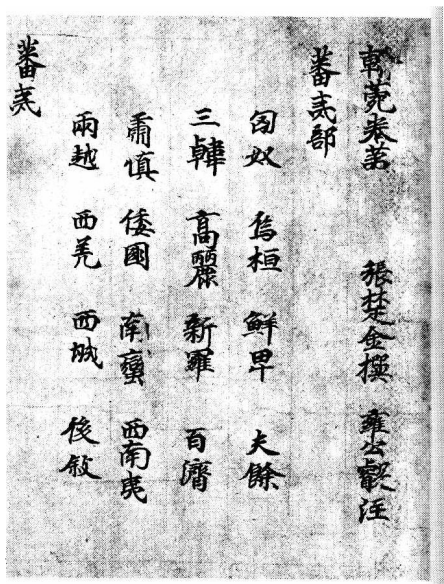 翰苑卷第　張楚金撰　雍公叡注
蕃夷部
匈奴　烏桓　鮮卑　夫餘
三韓　高麗　新羅　百濟
肅慎　倭國　南蠻　西南夷
兩越　西羌　西域　後敘
蕃夷